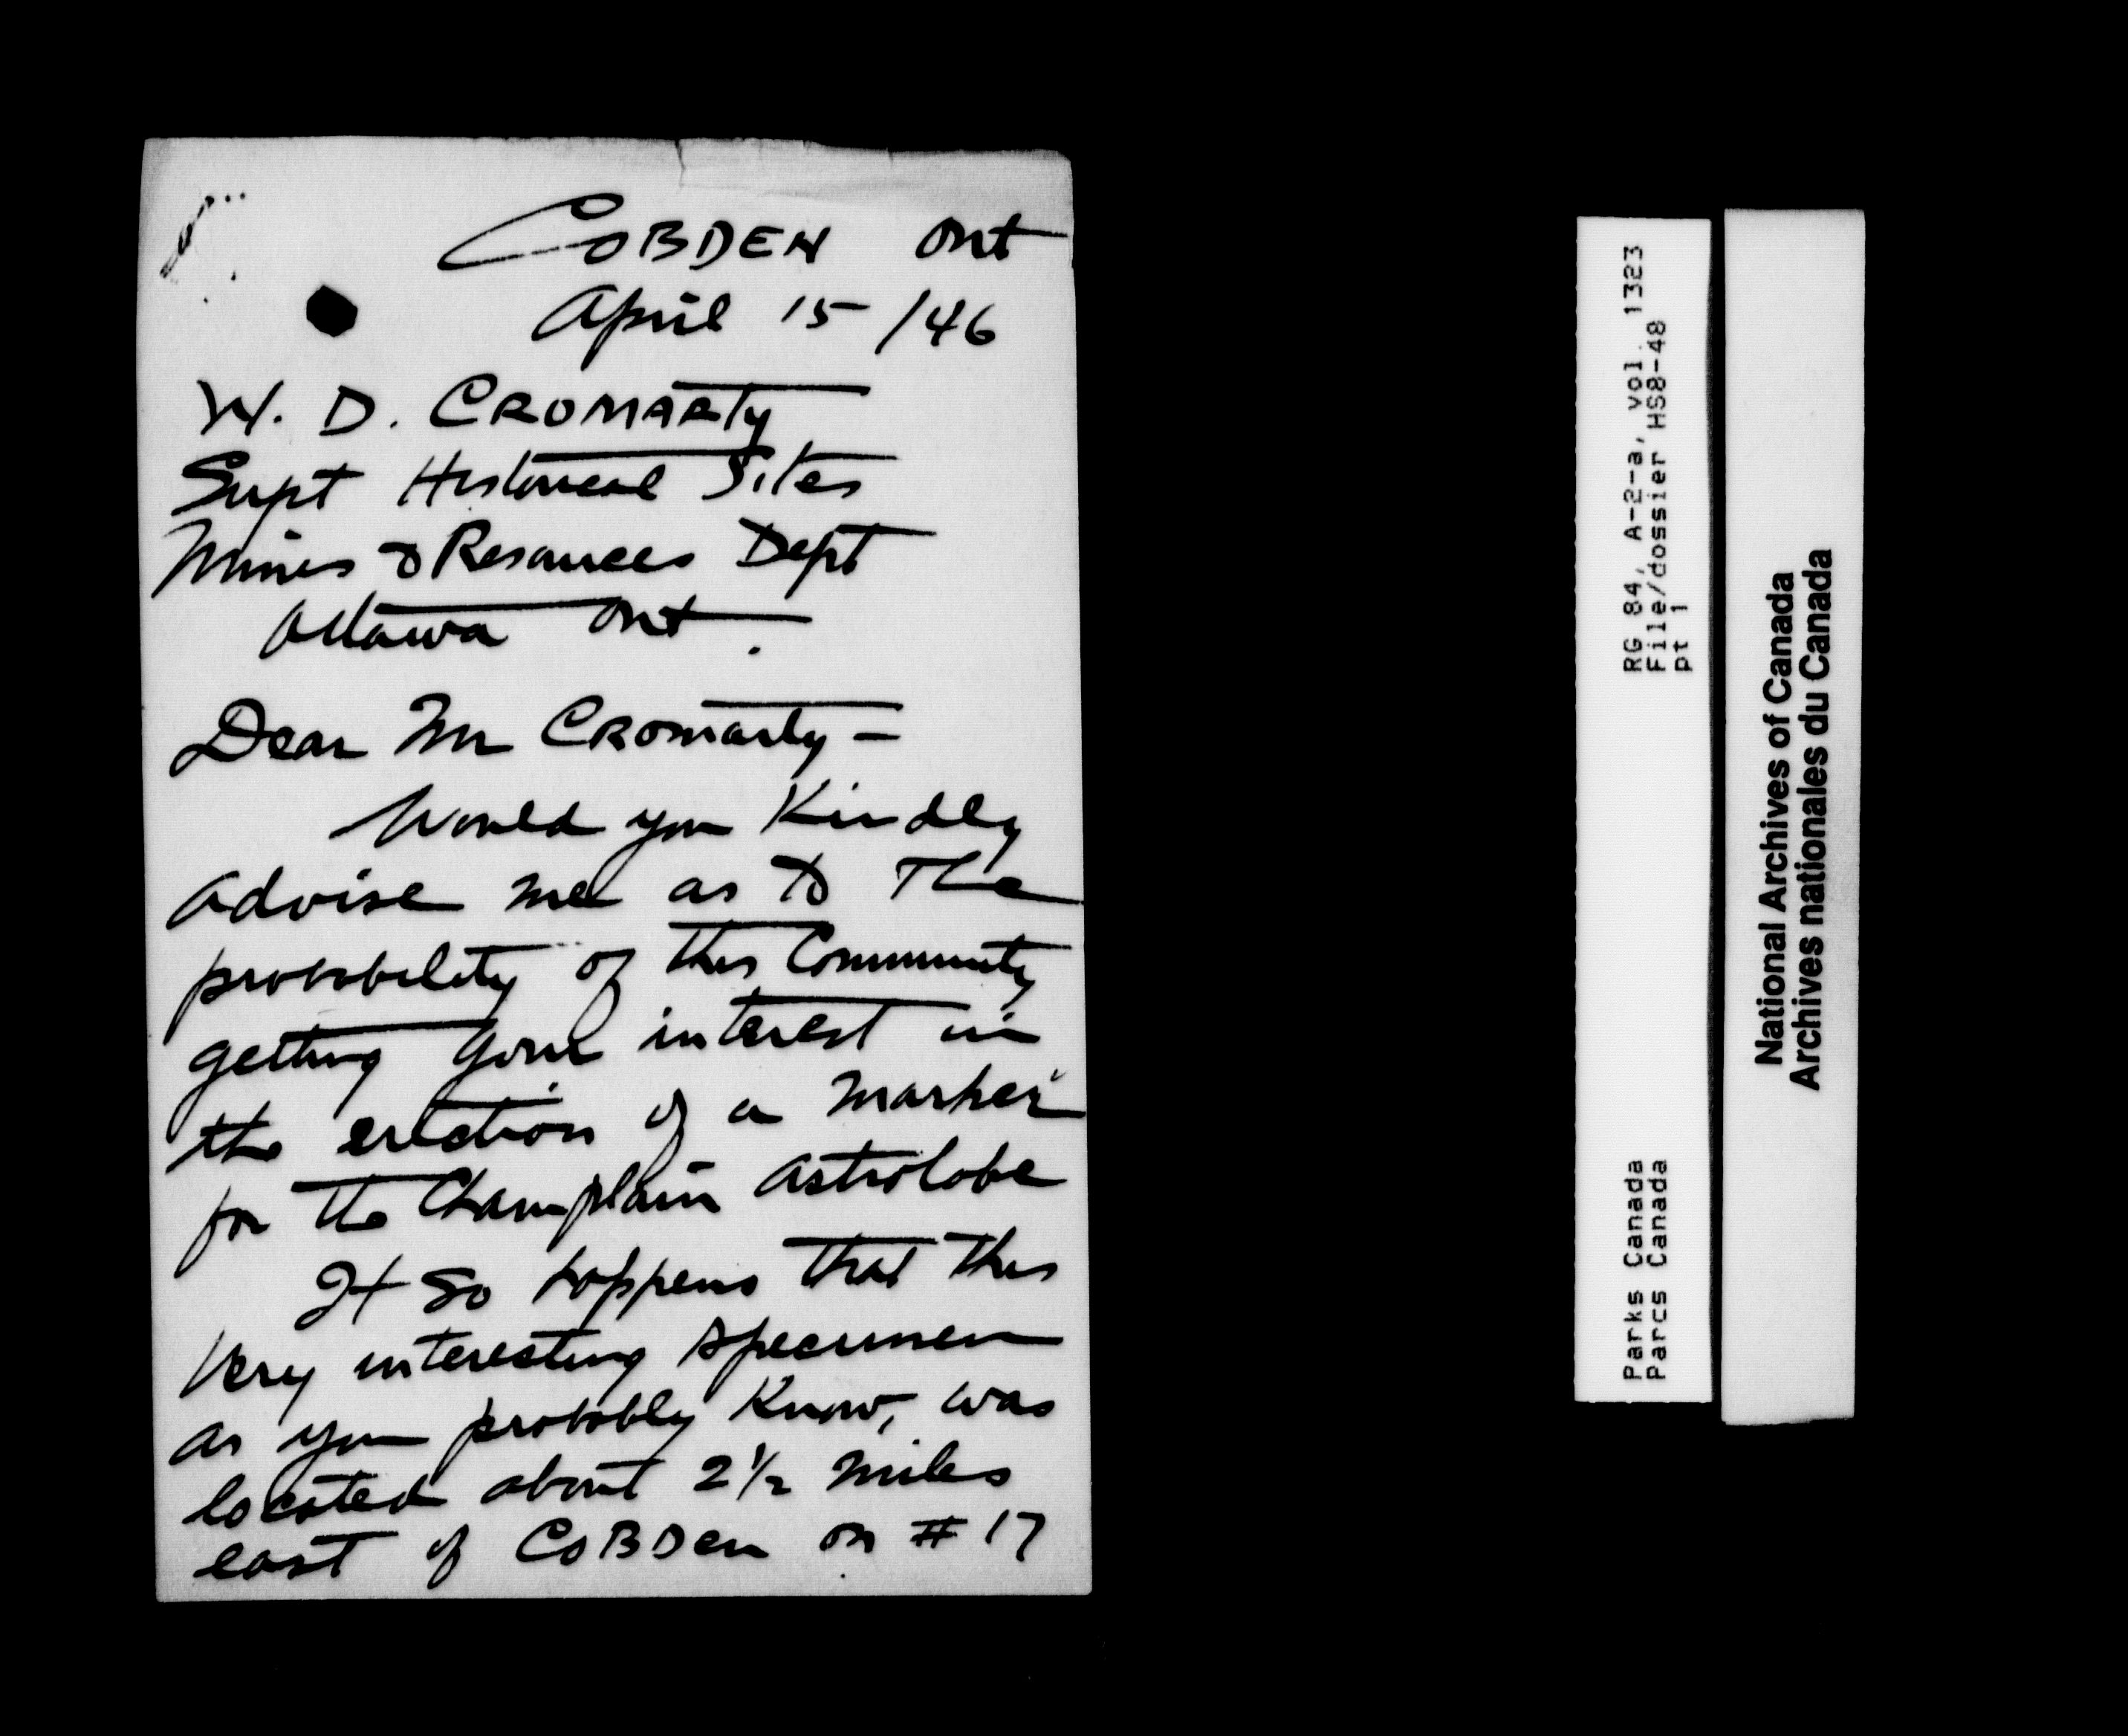 COBDEN Ont
April 15/46
W. D. CROMARTY
Supt Historical Sites
Mines & Resources Dept
Ottawa Ont.
Dear Mr CROMARTY -
Would you Kindly
advise me as to The
probability of this Community
getting your interest in
the erection of a marker
for the Champlain astrolobe
It so happens that this
Very interesting specimen
as you probably Know, was
located about 2½ miles
east of COBDEN on # 17
RG 84, A-2-a, vol. 1323
File/dossier HS8-48
pt 1
Parks Canada
Parcs Canada
National Archives of Canada
Archives nationales du Canada